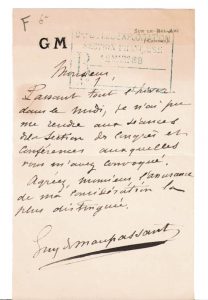 F 6
GM
Monsieur,
Passant tout l'hiver
dans le Midi, je n'ai pu
me rendre aux séances
de la Section des Congrès et
Conférences auxquelles
vous m'avez convoqué.
Agréez, monsieur, l'assurance
de ma considération la
plus distinguée.
Guy de Maupassant